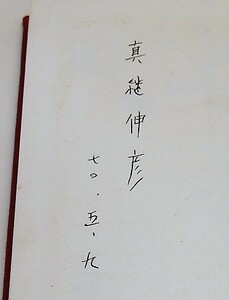 真継伸彦
七〇・五・九